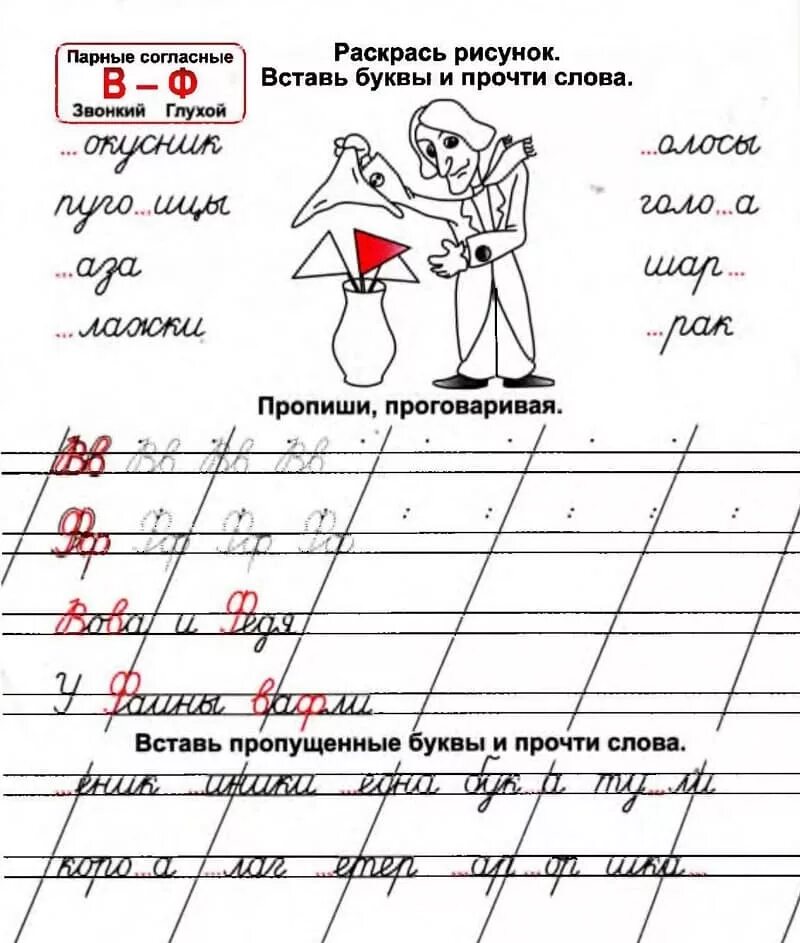 Парные согласные
В – Ф
Звонкий Глухой
Раскрась рисунок.
Вставь буквы и прочти слова.
...окусник
пуго...ицы
...аза
...лажки
...олосы
голо...а
шар...
...рак
Пропиши, проговаривая.
Вв Вв Вв Вв
Фф Фф Фф Фф
Вова и Федя
У Фаины вафли
Вставь пропущенные буквы и прочти слова.
...еник ...иники ...една бук...а ту...ли
коро...а ...лаг ...етер ...ар...ор шка...